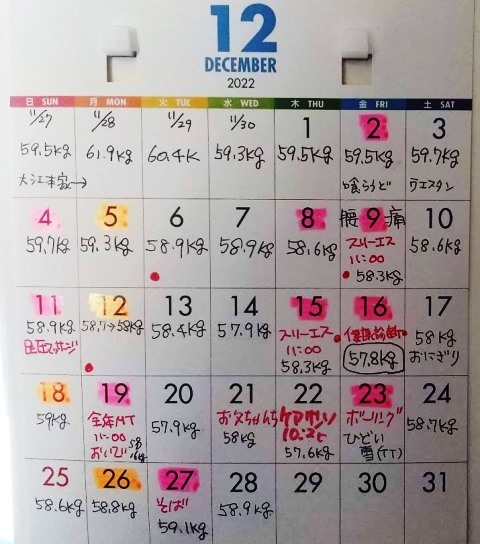 12
DECEMBER
2022
日 SUN 月 MON 火 TUE 水 WED 木 THU 金 FRI 土 SAT
11/27 11/28 11/29 11/30 1 2 3
59.5kg 61.9kg 60.4K 59.3kg 59.5kg 59.5kg 59.7kg
大江本家→ 喰うらど ウエスタン
4 5 6 7 8 腰 9 痛 10
59.7kg 59.3kg 58.9kg 58.9kg 58.6kg スリーエス 58.6kg
11:00
58.3kg
11 12 13 14 15 16 17
58.9kg 58.7→58kg 58.4kg 57.9kg スリーエス 保健診断 58kg
11:00 57.8kg おにぎり
58.3kg
18 19 20 21 22 23 24
59kg 全年MT 57.9kg お兄ちゃんち ケアサリソ ボーリング 58.7kg
11:00 58kg 10:20 ひどい
57.6kg 雪(TT)
25 26 27 28 29 30 31
58.6kg 58.8kg そば 58.9kg
59.1kg